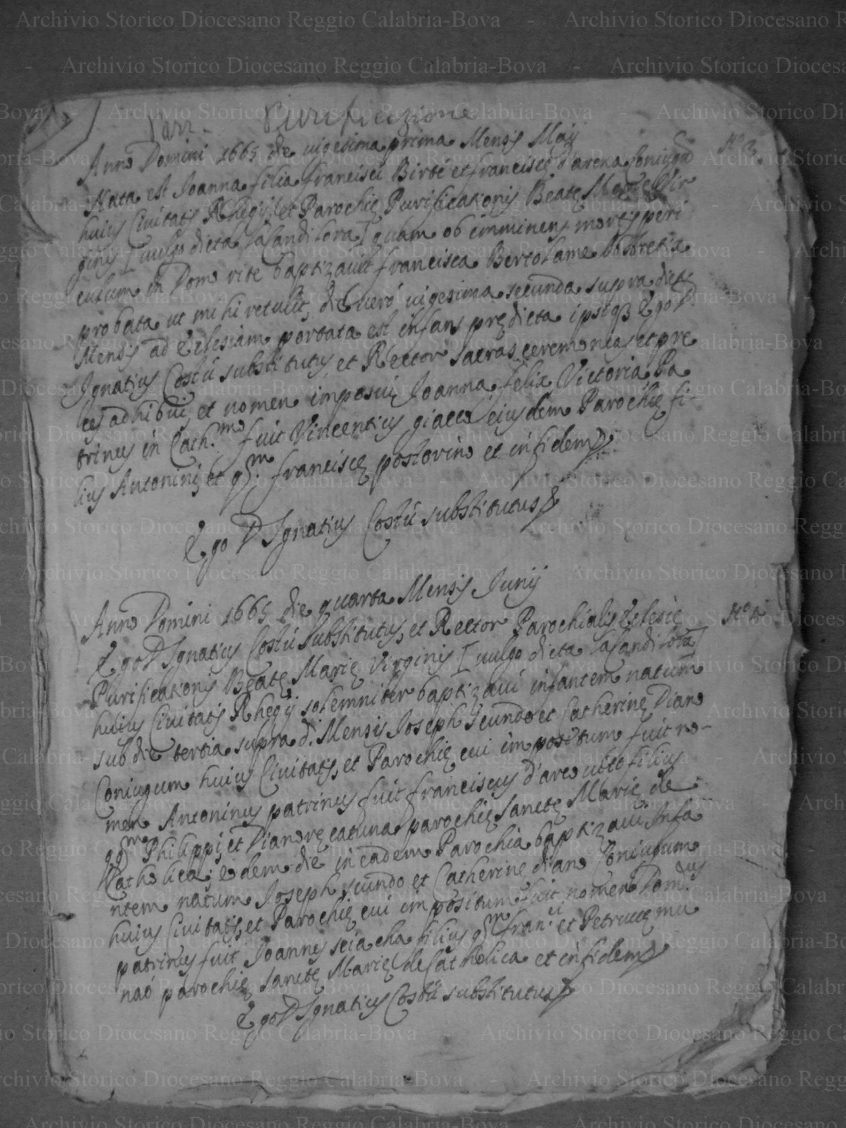 Purificazione
Anno Domini 1665 die vigesima prima Mensis Maij
Nº 3
Nata est Joanna filia francisci Birte et francisce d'arena Coniugu
huius Civitatis Rhegij, et Parochie Purificationis Beate Marie Vir
ginis [vulgo dicta la Candilora] quam ob imminens mortis peri
culum in Domo rite baptizavit francisca Bertolame obstetrix
probata ut mihi retulit, die vero vigesima secunda supra dicti
Mensis ad Eclesiam portata est infans predicta ipsiq3 Ego D.
Ignatius Costu substitutus et Rector sacras ceremonias et pre
ces adhibui, et nomen imposui Joanna felix Victoria Pa
trinus in Cath.mo fuit Vincentius giacco eiusdem Parochie fi
lius Antonini, et qm. francisce postorino et in fidem
Ego D Ignatius Costu substitutus
Anno Domini 1665 die quarta Mensis Junij
Nº 4
Ego D Ignatius Costu Substitutus, et Rector Parochialis Eclesie
Purificationis Beate Marie Virginis [vulgo dicta la Candilora]
huius Civitatis Rhegij solemniter baptizavi infantem natum
sub die tertia supra d. Mensis Joseph Scundo et Catherine Diano
Coniugum huius Civitatis, et Parochie cui impositum fuit no-
men Antoninus patrinus fuit franciscus d'arco filius
qqm Philippi, et Dianore catuna parochie Sancte Marie de
Catholica, eodem die in eadem Parochia baptizavi Infa
ntem natum Joseph Scundo et Catherine diano Coniugum
huius Civitatis, et Parochie cui impositum fuit nomen Dom.cus
patrinus fuit Joannes sciacha filius qm fran.ci et Petrucce mu
nao parochie sancte Marie de Catholica et in fidem
Ego D Ignatius Costu substitutus
Archivio Storico Diocesano Reggio Calabria-Bova